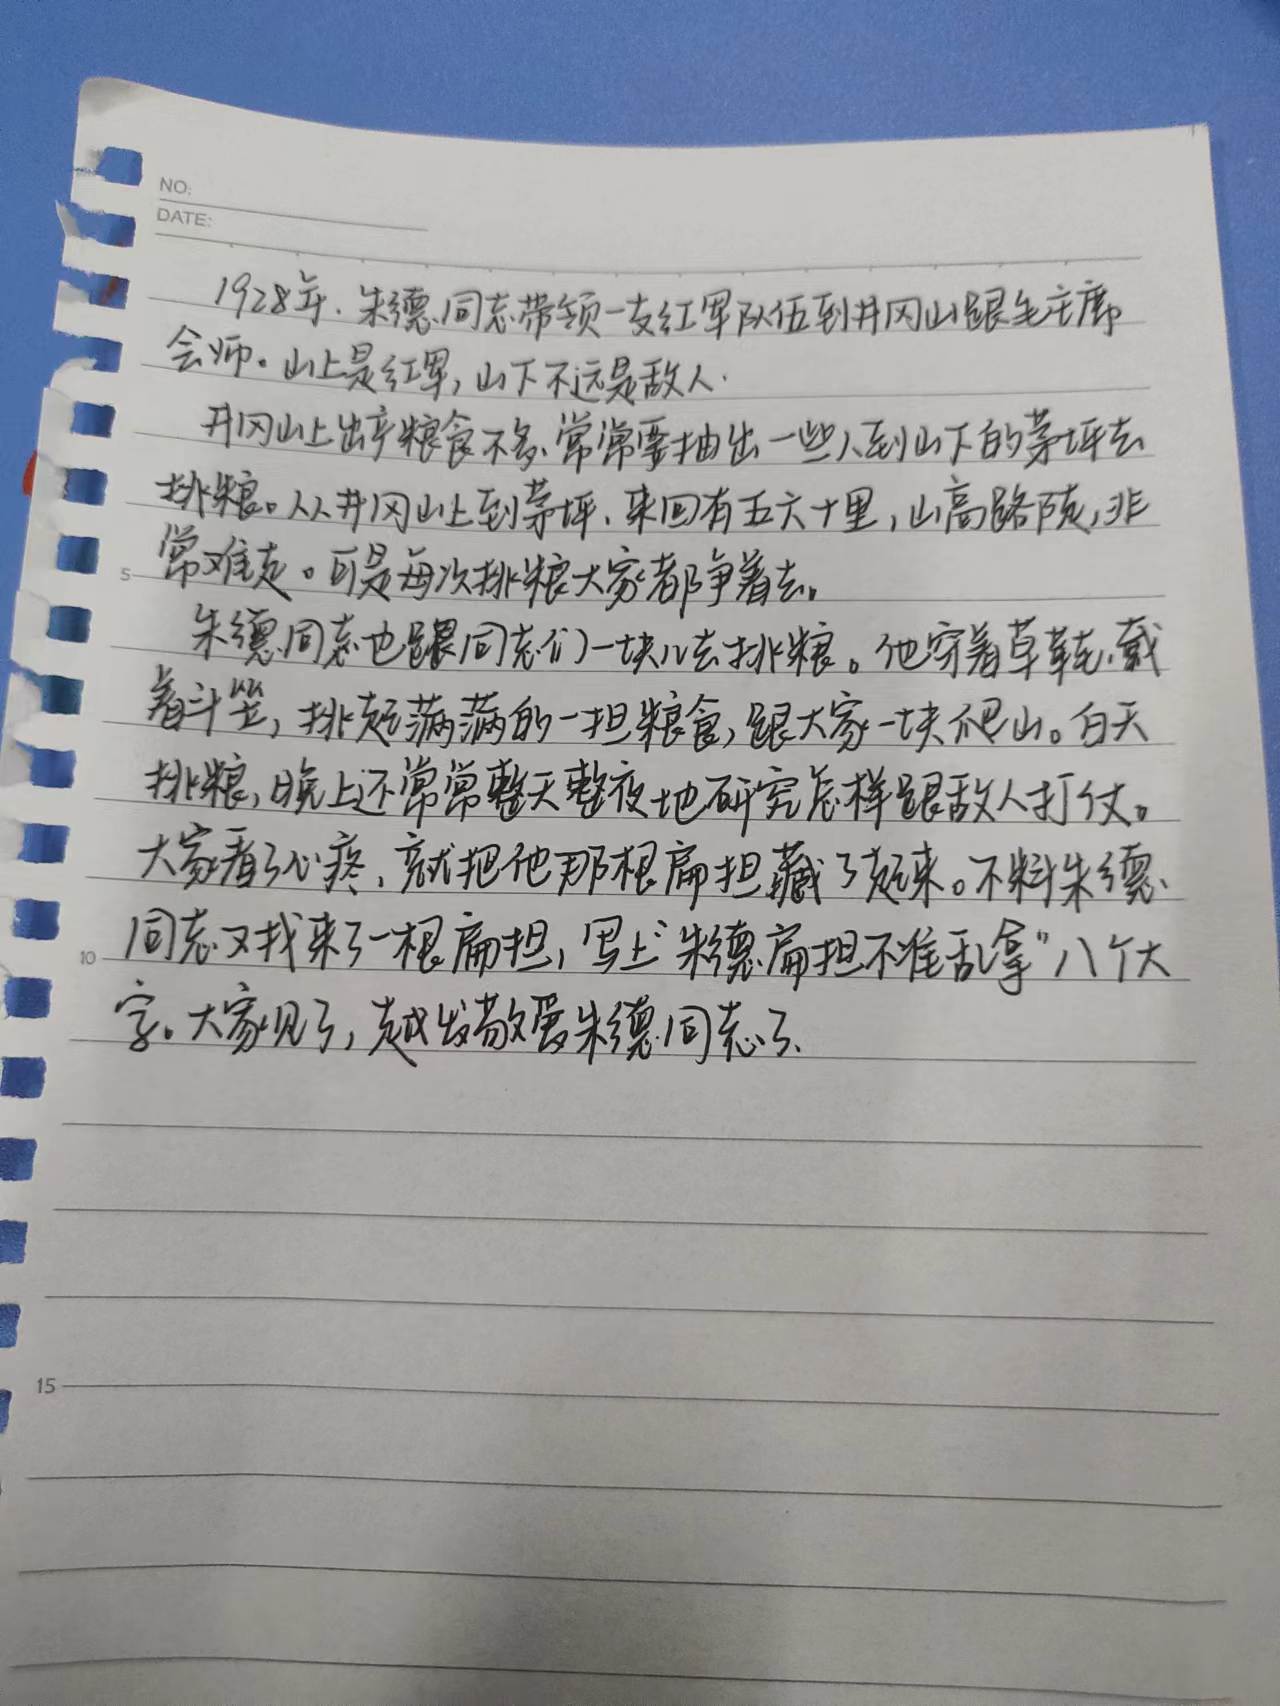 NO:
DATE:
1928年、朱德同志带领一支红军队伍到井冈山跟毛主席
会师。山上是红军,山下不远是敌人.
井冈山上出产粮食不多、常常要抽出一些人到山下的茅坪去
挑粮。从井冈山上到茅坪、来回有五六十里,山高路陡,非
5 常难走。可是每次挑粮大家都争着去。
朱德同志也跟同志们一块儿去挑粮。他穿着草鞋、戴
着斗笠,挑起满满的一担粮食,跟大家一块爬山。白天
挑粮,晚上还常常整天整夜地研究怎样跟敌人打仗。
大家看了心疼、就把他那根扁担藏了起来。不料朱德
10 同志又找来了一根扁担,写上“朱德扁担不准乱拿”八个大
字。大家见了,越发敬爱朱德同志了、
15